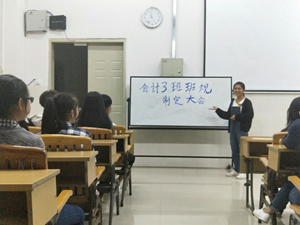 会计3班班规
制定大会